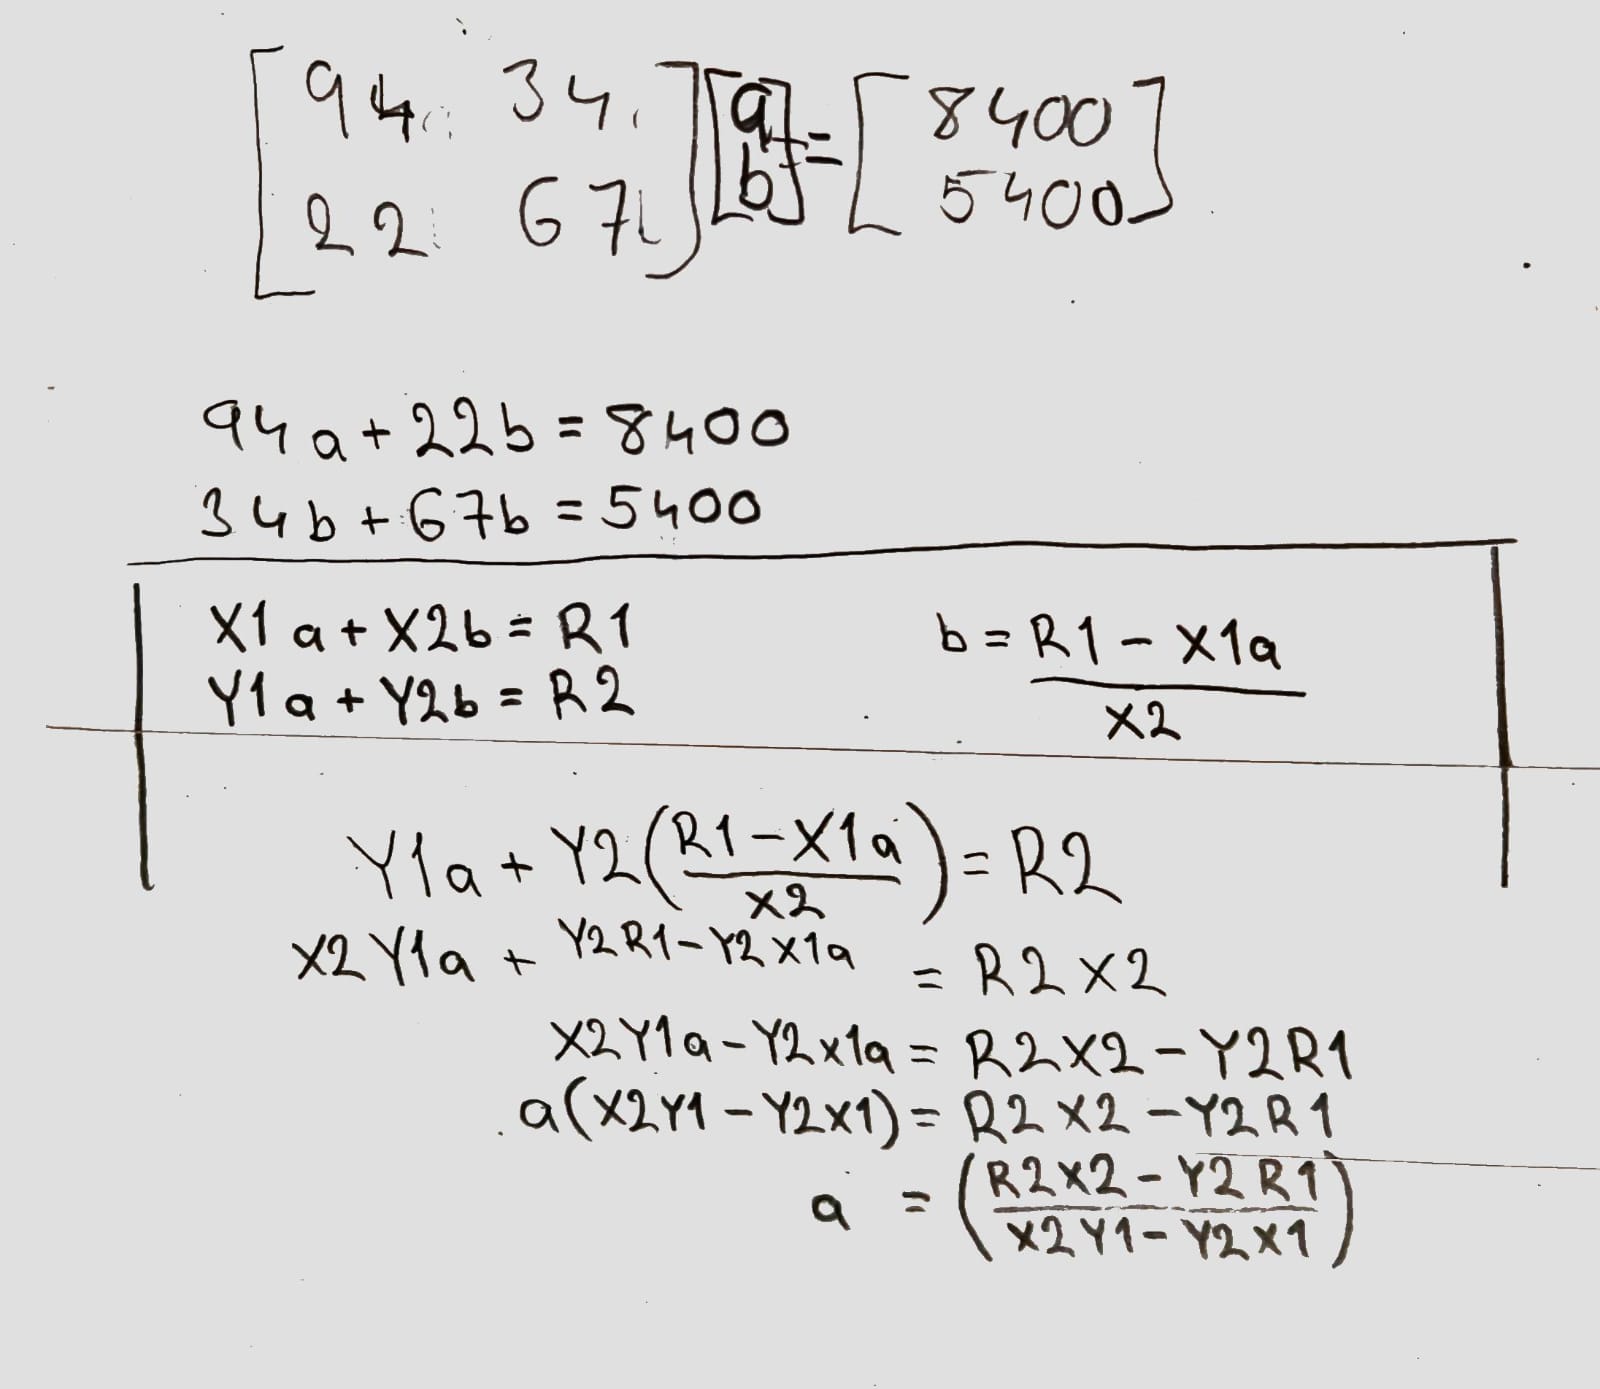 [ 94 34 ] [ a ] = [ 8400 ]
[ 22 67 ] [ b ] [ 5400 ]
94a + 22b = 8400
34b + 67b = 5400
X1a + X2b = R1
Y1a + Y2b = R2
b = R1 - X1a
X2
Y1a + Y2(R1 - X1a / X2) = R2
X2Y1a + Y2R1 - Y2X1a = R2X2
X2Y1a - Y2X1a = R2X2 - Y2R1
a(X2Y1 - Y2X1) = R2X2 - Y2R1
a = (R2X2 - Y2R1 / X2Y1 - Y2X1)